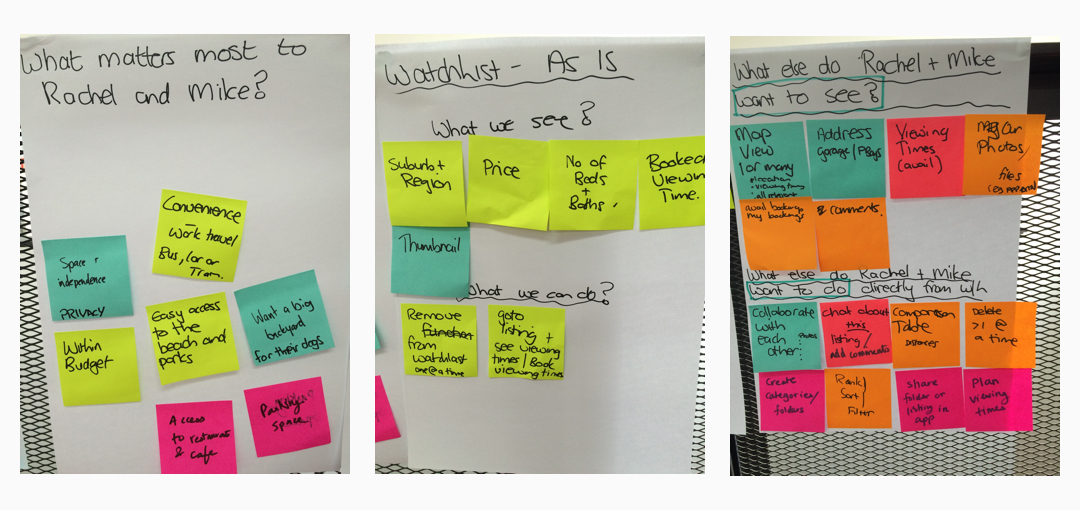 What matters most to
Rachel and Mike?
Convenience
Work travel
Bus, car or
Tram.
Space +
independence
PRIVACY
Easy access
to the
beach and
parks
Want a big
backyard
for their dogs
Within
Budget
Access
to restaurants
& cafe
Parking
space
Watchlist - As Is
What we see?
Suburb +
Region
Price
No of
Beds
+
Baths.
Booked
Viewing
Time.
Thumbnail
What we can do?
Remove
from
watchlist
one @ a time
goto
listing +
see viewing
times / Book
viewing times
What else do Rachel + Mike
want to see?
Map
View
1 or many
Address
garage / Pbays
Viewing
Times
(avail)
Our
Photos/
files
avail bookings
my bookings
& comments.
What else do Rachel + Mike
want to do directly from w/l
Collaborate
with
each
other:
chat about
this
listing /
add comments
Comparison
Table
Distances
Delete
>1 @
a time
Create
category/
folders
Rank/
Sort/
Filter
share
folder or
listing in
app
Plan
viewing
times